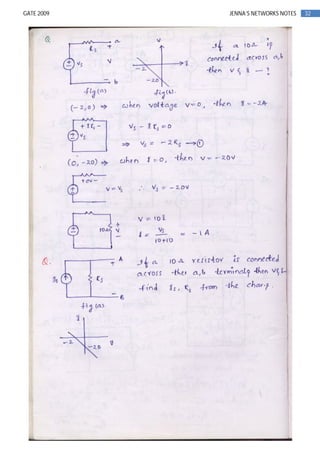 GATE 2009
JENNA'S NETWORKS NOTES 32
Q. Rs a
+
Vs V
- b
fig(a)
V
I
-2
-20
fig(b).
If a 10Ω is
connected across a,b
then V & I — ?
(-2,0) ⇒ when voltage V=0, then I = -2A
+ I Rs -
Vs
Vs - I Rs = 0
⇒ Vs = -2Rs → ①
(0, -20) ⇒ when I = 0, then V = -20V
+ 0V -
V = Vs ∴ Vs = -20V
10Ω V
+
-
V = 10I
I = Vs / 10+10 = -1 A.
Q. A
+
Is Rs
-
B
fig (a).
If a 10Ω resistor is connected
across the A,b terminals then V & I.
find Is, Rs from the char.
I
-2
-20
V